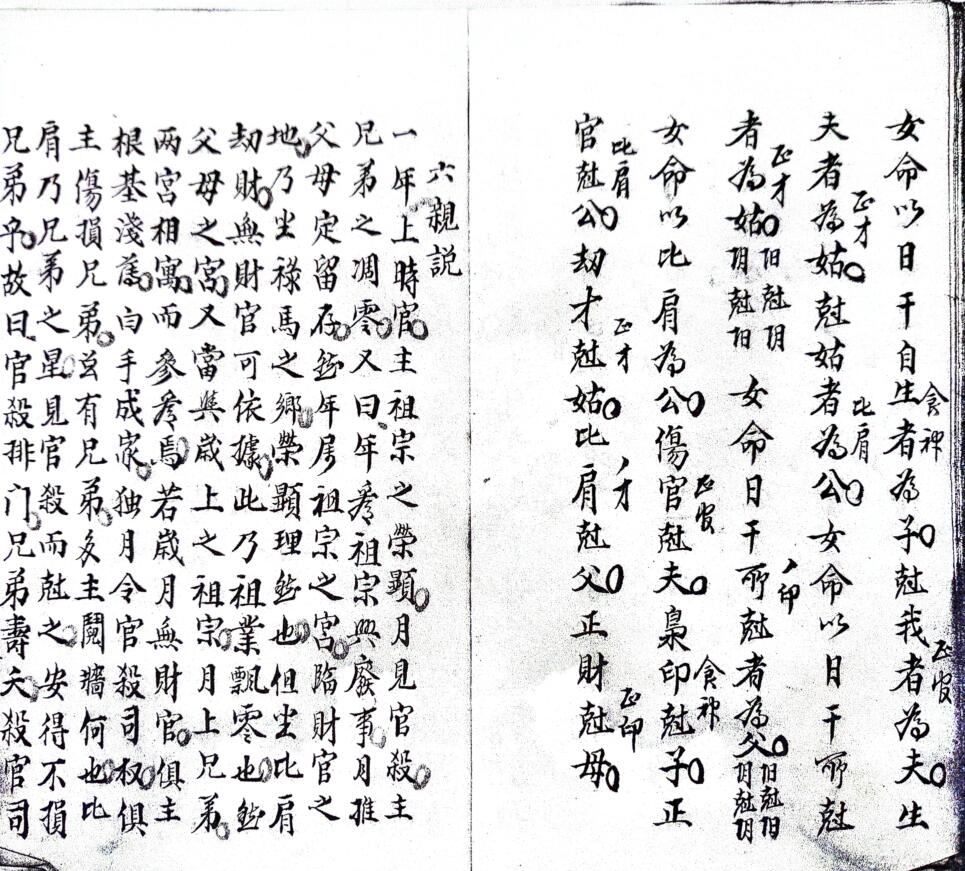 女命以日干自生者為子尅我者為夫生
食神
正官
夫者為姑尅姑者為公女命以日干所尅
正才
比肩
者為姑阳尅阴阴尅阳女命日干所尅者為父阳尅阳阴尅阴
正才
丿印
女命以比肩為公傷官尅夫梟印尅子正
正官
食神
官尅公劫才尅姑比肩尅父正財尅母
比肩
正才
丿才
正印
六親説
一年上時官主祖宗之榮顯月見官殺主
兄弟之凋零又曰年看祖宗興廢事月推
父母定留存然年居祖宗之宮臨財官之
地乃坐禄馬之鄉榮顯理然也但坐比肩
劫財無財官可依據此乃祖業飄零也然
父母之宮又當與歲上之祖宗月上兄弟
两宮相寓而參看焉若歲月無財官俱主
根基淺薄白手成家独月令官殺司权俱
主傷損兄弟並有兄弟多主鬩牆何也比
肩乃兄弟之星見官殺而尅之安得不損
兄弟乎故曰官殺排门兄弟壽夭殺官司